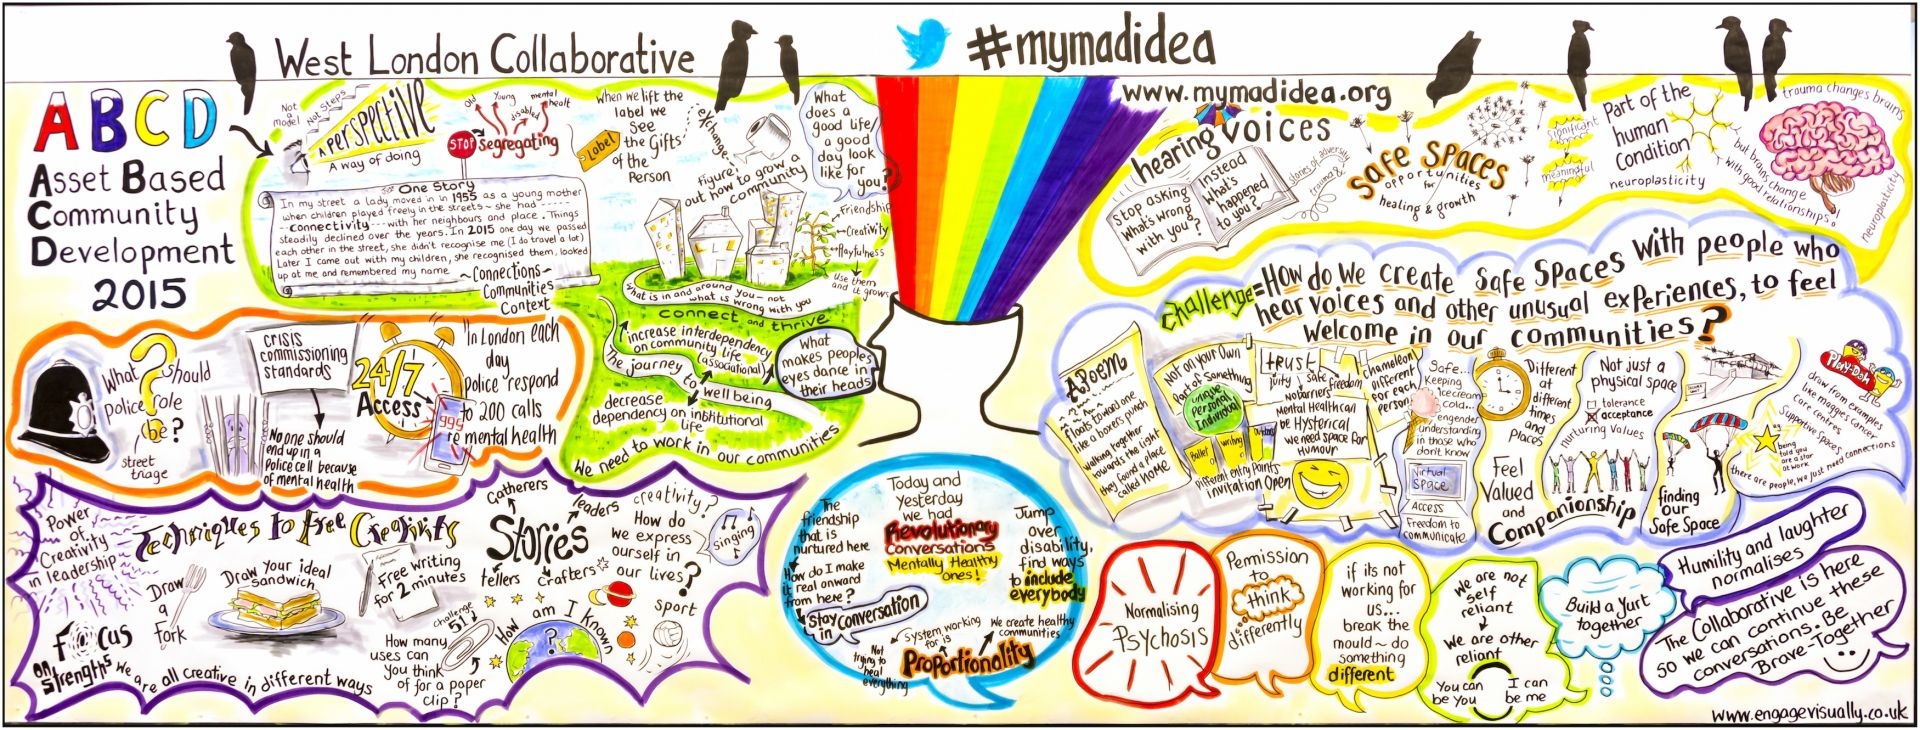 West London Collaborative
#mymadidea
www.mymadidea.org
ABCD
Asset Based
Community
Development
2015
Not
a
model
Not Steps
A perspective
A way of doing
STOP
segregating
Old
Young
disabled
mental
healt
When we lift the
label we
See
the Gifts
of the
Person
Label
exchange
Figure
out how to grow a
community
What
does a
good life/
a good
day look
like for
you?
Friendship
Creativity
Playfulness
Use them
and it grows
One Story
In my street a lady moved in in 1955 as a young mother
when children played freely in the streets ~ she had
connectivity with her neighbours and place. Things
steadily declined over the years. In 2015 one day we passed
each other in the street, she didn't recognise me (I do travel a lot)
Later I came out with my children, she recognised them, looked
up at me and remembered my name
~Connections~
Communities
Context
What is in and around you - not
what is wrong with you
connect and thrive
increase interdependency
on community life
(associational)
The journey to
well being
decrease
dependency on institutional
life
We need to work in our communities
What
makes peoples
eyes dance in
their heads
What should
police role
be?
street
triage
CRISIS
commissioning
standards
No one should
end up in a
Police cell because
of mental health
24/7
Access
999
In London each
day
Police respond
to 200 calls
re mental health
Power
of
Creativity
in leadership
Techniques to free Creativity
Draw
a
Fork
Draw your ideal
sandwich
Free writing
for 2 minutes
Focus
on
strengths
We are all creative in different ways
challenge
51!
How many
uses can
you think
of for a paper
clip?
Gatherers
leaders
Stories
tellers
crafters
creativity?
How do
we express
ourself in
our lives?
singing
sport
How am I known
?
The
friendship
that is
nurtured here
How do I make
it real onward
from here?
Stay conversation
in
Today and
Yesterday
we had
Revolutionary
Conversations
Mentally Healthy
ones!
Jump
over
disability,
find ways
to include
everybody
System working
for is
We create healthy
communities
Proportionality
Not
trying to
heal
everything
hearing voices
Stop asking
What's wrong
with you?
instead
What's
happened
to you?
stories of adversity
trauma &
Safe Spaces
opportunities
for
healing & growth
Significant
meaningful
Part of the
human
Condition
neuroplasticity
trauma changes brains
but brains change
with good relationships.
neuroplasticity
Challenge = How do we create Safe Spaces with people who
hear voices and other unusual experiences, to feel
welcome in our communities?
A Poem
floats toward one
like a boxers punch
Walking together
towards the light
they found a place
called HOME
Not on your own
Part of Something
unique
personal
individual
Ballet
writing
Different entry Points
invitation Open
trust
safe
freedom
No barriers
Mental Health can
be Hysterical
We need space for
HUMOUR
Chameleon
different
For each
person
Safe...
Keeping
icecream
cold...
engender
understanding
in those who
don't know
Virtual
Space
Access
Freedom to
communicate
Different
at
different
times
and
places
Feel
Valued
and
Companionship
Not just a
physical space
tolerance
acceptance
nurturing values
finding
our
Safe Space
Play-Doh
draw from examples
like maggie's cancer
care centres
supportive spaces
being
told you
are a star
at work
there are people, we just need connections
Normalising
Psychosis
Permission
to
think
differently
if its not
working for
us...
break the
mould ~ do
something
different
We are not
self
reliant
We are other
reliant
You can
be you
I can
be me
Build a Yurt
together
Humility and laughter
normalises
The Collaborative is here
so we can continue these
conversations. Be
Brave-Together
www.engagevisually.co.uk